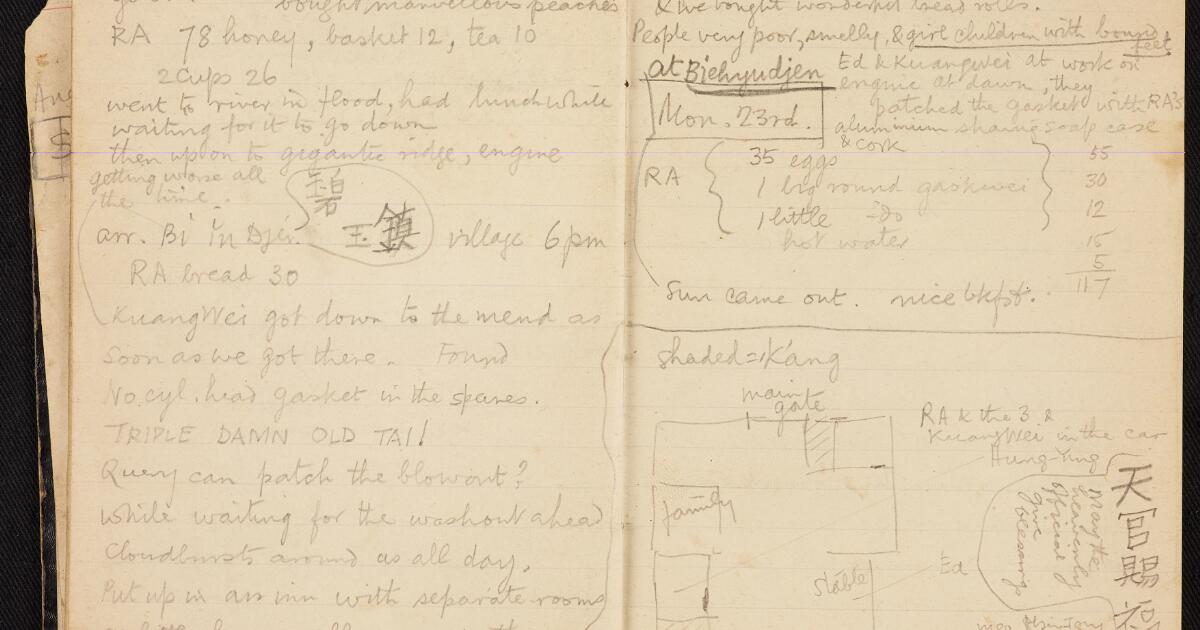 bought marvellous peaches
RA 78 honey, basket 12, tea 10
2 cups 26
went to river in flood, had lunch while
waiting for it to go down
then up on to gigantic ridge, engine
getting worse all
the time..
碧
玉鎮
arr. Bi in Djen. village 6 pm
RA bread 30
KuangWei got down to the mend as
soon as we got there. Found
No cyl. head gasket in the spares.
TRIPLE DAMN OLD TAI!
Query can patch the blowout?
while waiting for the washout ahead
Cloudbursts around as all day.
Put up in an inn with separate rooms
Aug
$
& we bought wonderful bread rolls.
People very poor, smelly, & girl children with bound
feet
at Biehyudjen
Mon. 23rd.
Ed & KuangWei at work on
engine at dawn, they
patched the gasket with RA's
aluminium shaving soap case
& cork
RA
35 eggs 55
1 big round gaokwei 30
1 little -do 12
hot water 15
5
117
Sun came out. nice bkfst.
shaded = K'ang
main
gate
family
stable
RA & the 3 &
KuangWei in the car
Hung-Ying
Ed
天官賜
may the
heavenly
official
give
blessings